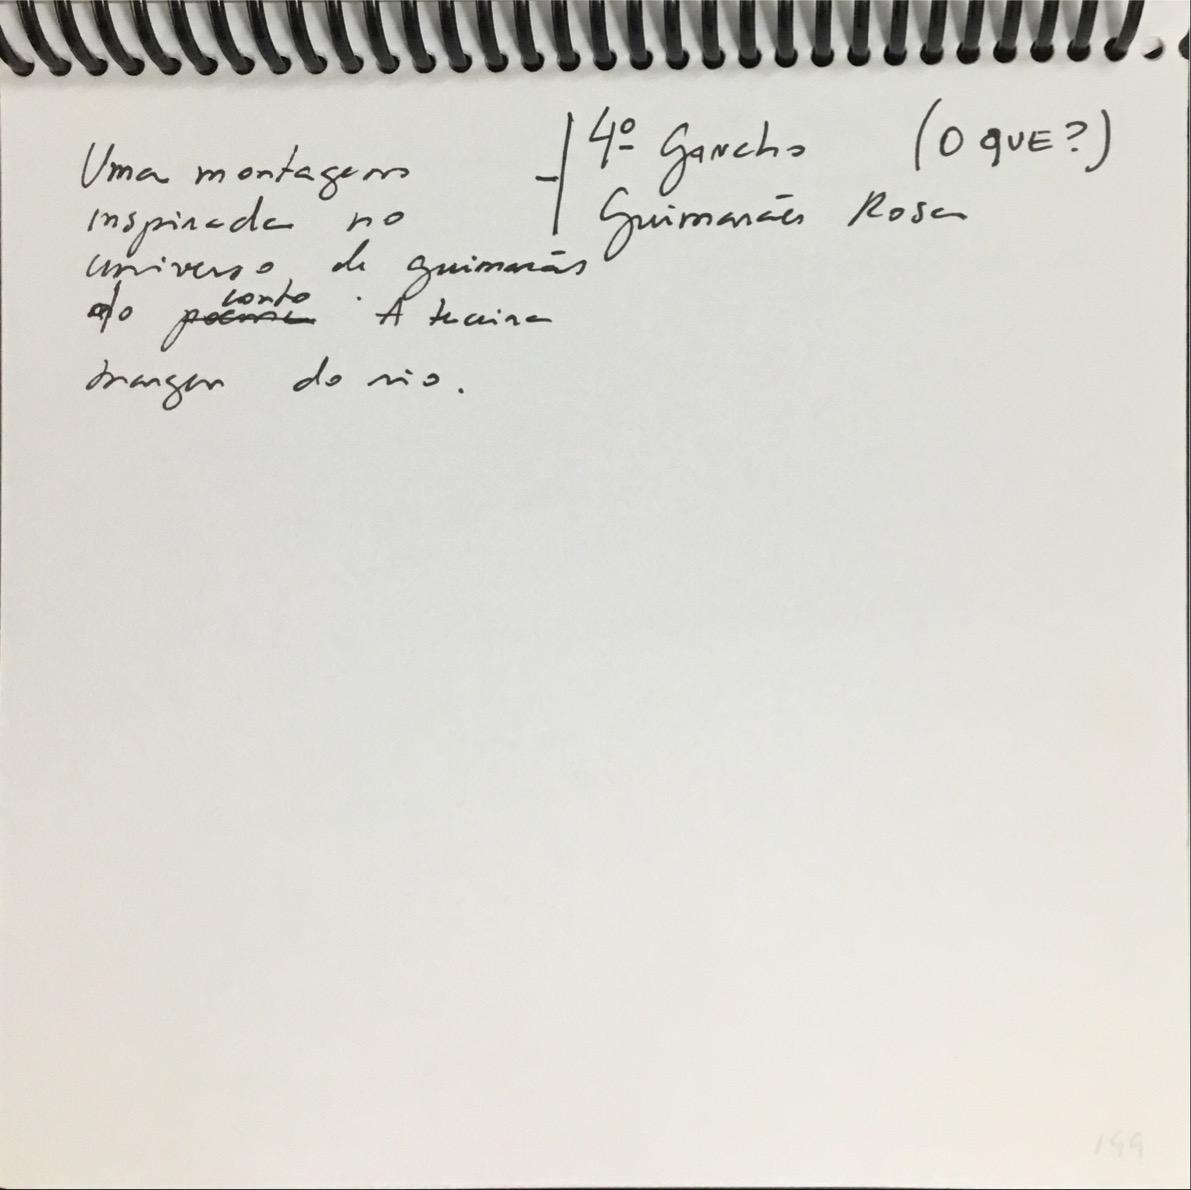 Uma montagem
inspirada no
universo de guimarães
do poema conto A terceira
margem do rio.
4º Gancho (O QUE?)
Guimarães Rosa
199